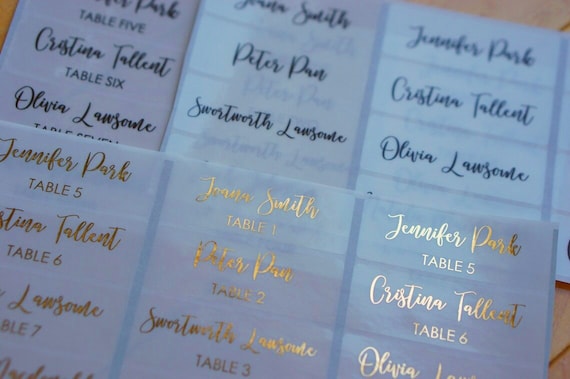 Jennifer Park
TABLE FIVE
Cristina Tallent
TABLE SIX
Olivia Lawsome
TABLE SEVEN
Joana Smith
Peter Pan
Swortworth Lawsome
Jennifer Park
Cristina Tallent
Olivia Lawsome
Jennifer Park
TABLE 5
Cristina Tallent
TABLE 6
Lawsome
TABLE 7
Joana Smith
TABLE 1
Peter Pan
TABLE 2
Swortworth Lawsome
TABLE 3
Jennifer Park
TABLE 5
Cristina Tallent
TABLE 6
Olivia Lawsome